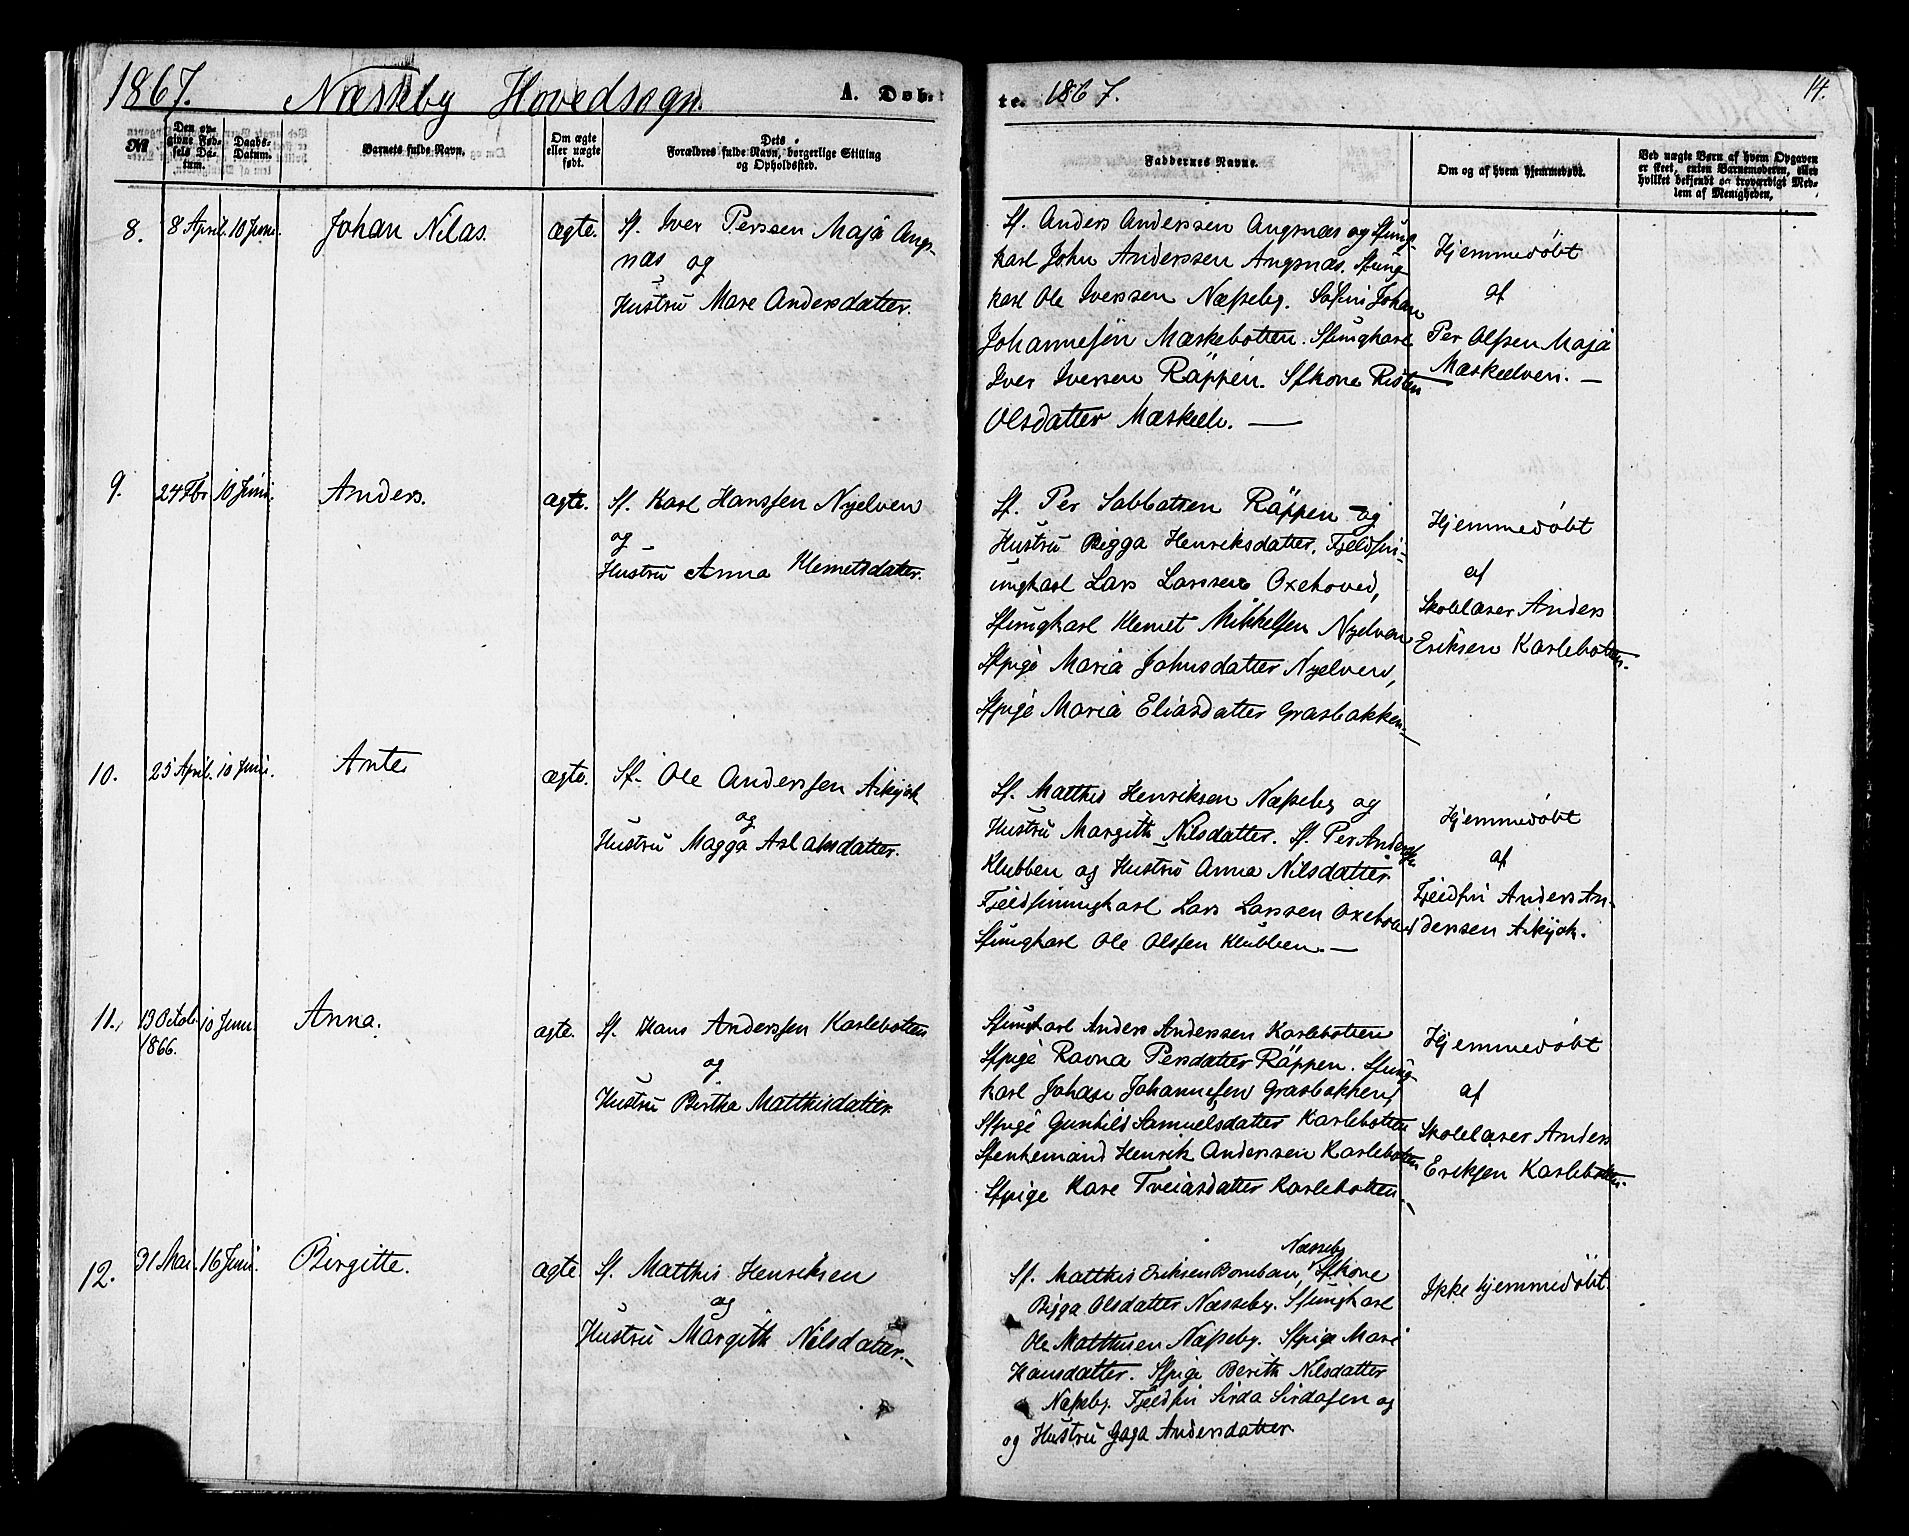 1867. Næsseby Hovedsogn. A. Døb-
te. 1867. 14.
No
Den op-
givne Fød-
sels Da-
tum.
Daabs-
Datum.
Barnets fulde Navn.
Om ægte
eller uægte
født.
Dets
Forældres fulde Navn, borgerlige Stilling
og Opholdssted.
Faddernes Navne.
Om og af hvem hjemmedøbt.
Ved uægte Børn af hvem Opgaven
er skeet, enten Barnemoderen, eller
hvilket bekjendt og troværdigt Med-
lem af Menigheden.
8. 8 April. 10 Juni. Johan Nilas. ægte.
Sf. Iver Perssen Maja Angs-
næs og
Hustru Mare Andersdatter.
Sf. Anders Anderssen Angsnæs og Sfung-
karl John Anderssen Angsnæs. Sfung
karl Ole Iverssen Næsseby. Søfin Johan
Johannesen Mæskebotten. Sfungkarl
Iver Iversen Räppen. Sfkone Risten
Olsdatter Mæskelv. —
Hjemmedøbt
af
Per Olssen Maja
Mæskelven. —
9. 24 Fbr 10 Juni. Anders. ægte.
Sf. Karl Hanssen Nyelven
og
Hustru Anna Klemetsdatter.
Sf. Per Sabbasen Räppen og
Hustru Bigga Henriksdatter, Fjeldfin-
ungkarl Lars Larssen Oxehoved,
Sfungkarl Klemet Mikkelsen Nyelven
Sfpige Maria Johnsdatter Nyelven,
Sfpige Maria Eliasdatter Grasbakken. —
Hjemmedøbt
af
Skolelærer Anders
Eriksen Karlebotten.
10. 25 April. 10 Juni. Ante ægte.
Sf. Ole Anderssen Aikjok
og
Hustru Magga Aslaksdatter.
Sf. Matthis Henriksen Næsseby og
Hustru Margith Nilsdatter. Sf. Per Anderss.
Klubben og Hustru Anna Nilsdatter
Fjeldfinungkarl Lars Larssen Oxehoved
Sfungkarl Ole Olssen Klubben. —
Hjemmedøbt
af
Fjeldfin Anders An-
derssen Aikjok.
11. 13 Octob. 10 Juni. Anna. ægte.
1866.
Sf. Hans Anderssen Karlebotten
og
Hustru Birtha Matthisdatter
Sfungkarl Anders Anderssen Karlebotten
Sfpige Ravna Persdatter Räppen. Sfung
karl Johan Johannesen Grasbakken,
Sfpige Gunhild Samuelsdatter Karlebotten
Sfenkemand Henrik Anderssen Karlebotten
Sfpige Kare Tveiasdatter Karlebotten. —
Hjemmedøbt
af
Skolelærer Anders
Eriksen Karlebotten.
12. 31 Mai. 16 Juni. Birgitte. ægte
Sf. Matthis Henriksen
og
Hustru Margith Nilsdatter. —
Næsseby
Sf. Matthis Eriksen Bomban, Sfkone
Bigga Olsdatter Næsseby. Sfungkarl
Ole Matthisen Næsseby. Sfpige Mari
Hansdatter. Sfpige Berith Nilsdatter
Næsseby. Fjeldfin Sirda Sirdasen og
og Hustru Gaga Andersdatter.
Ikke hjemmedøbt.